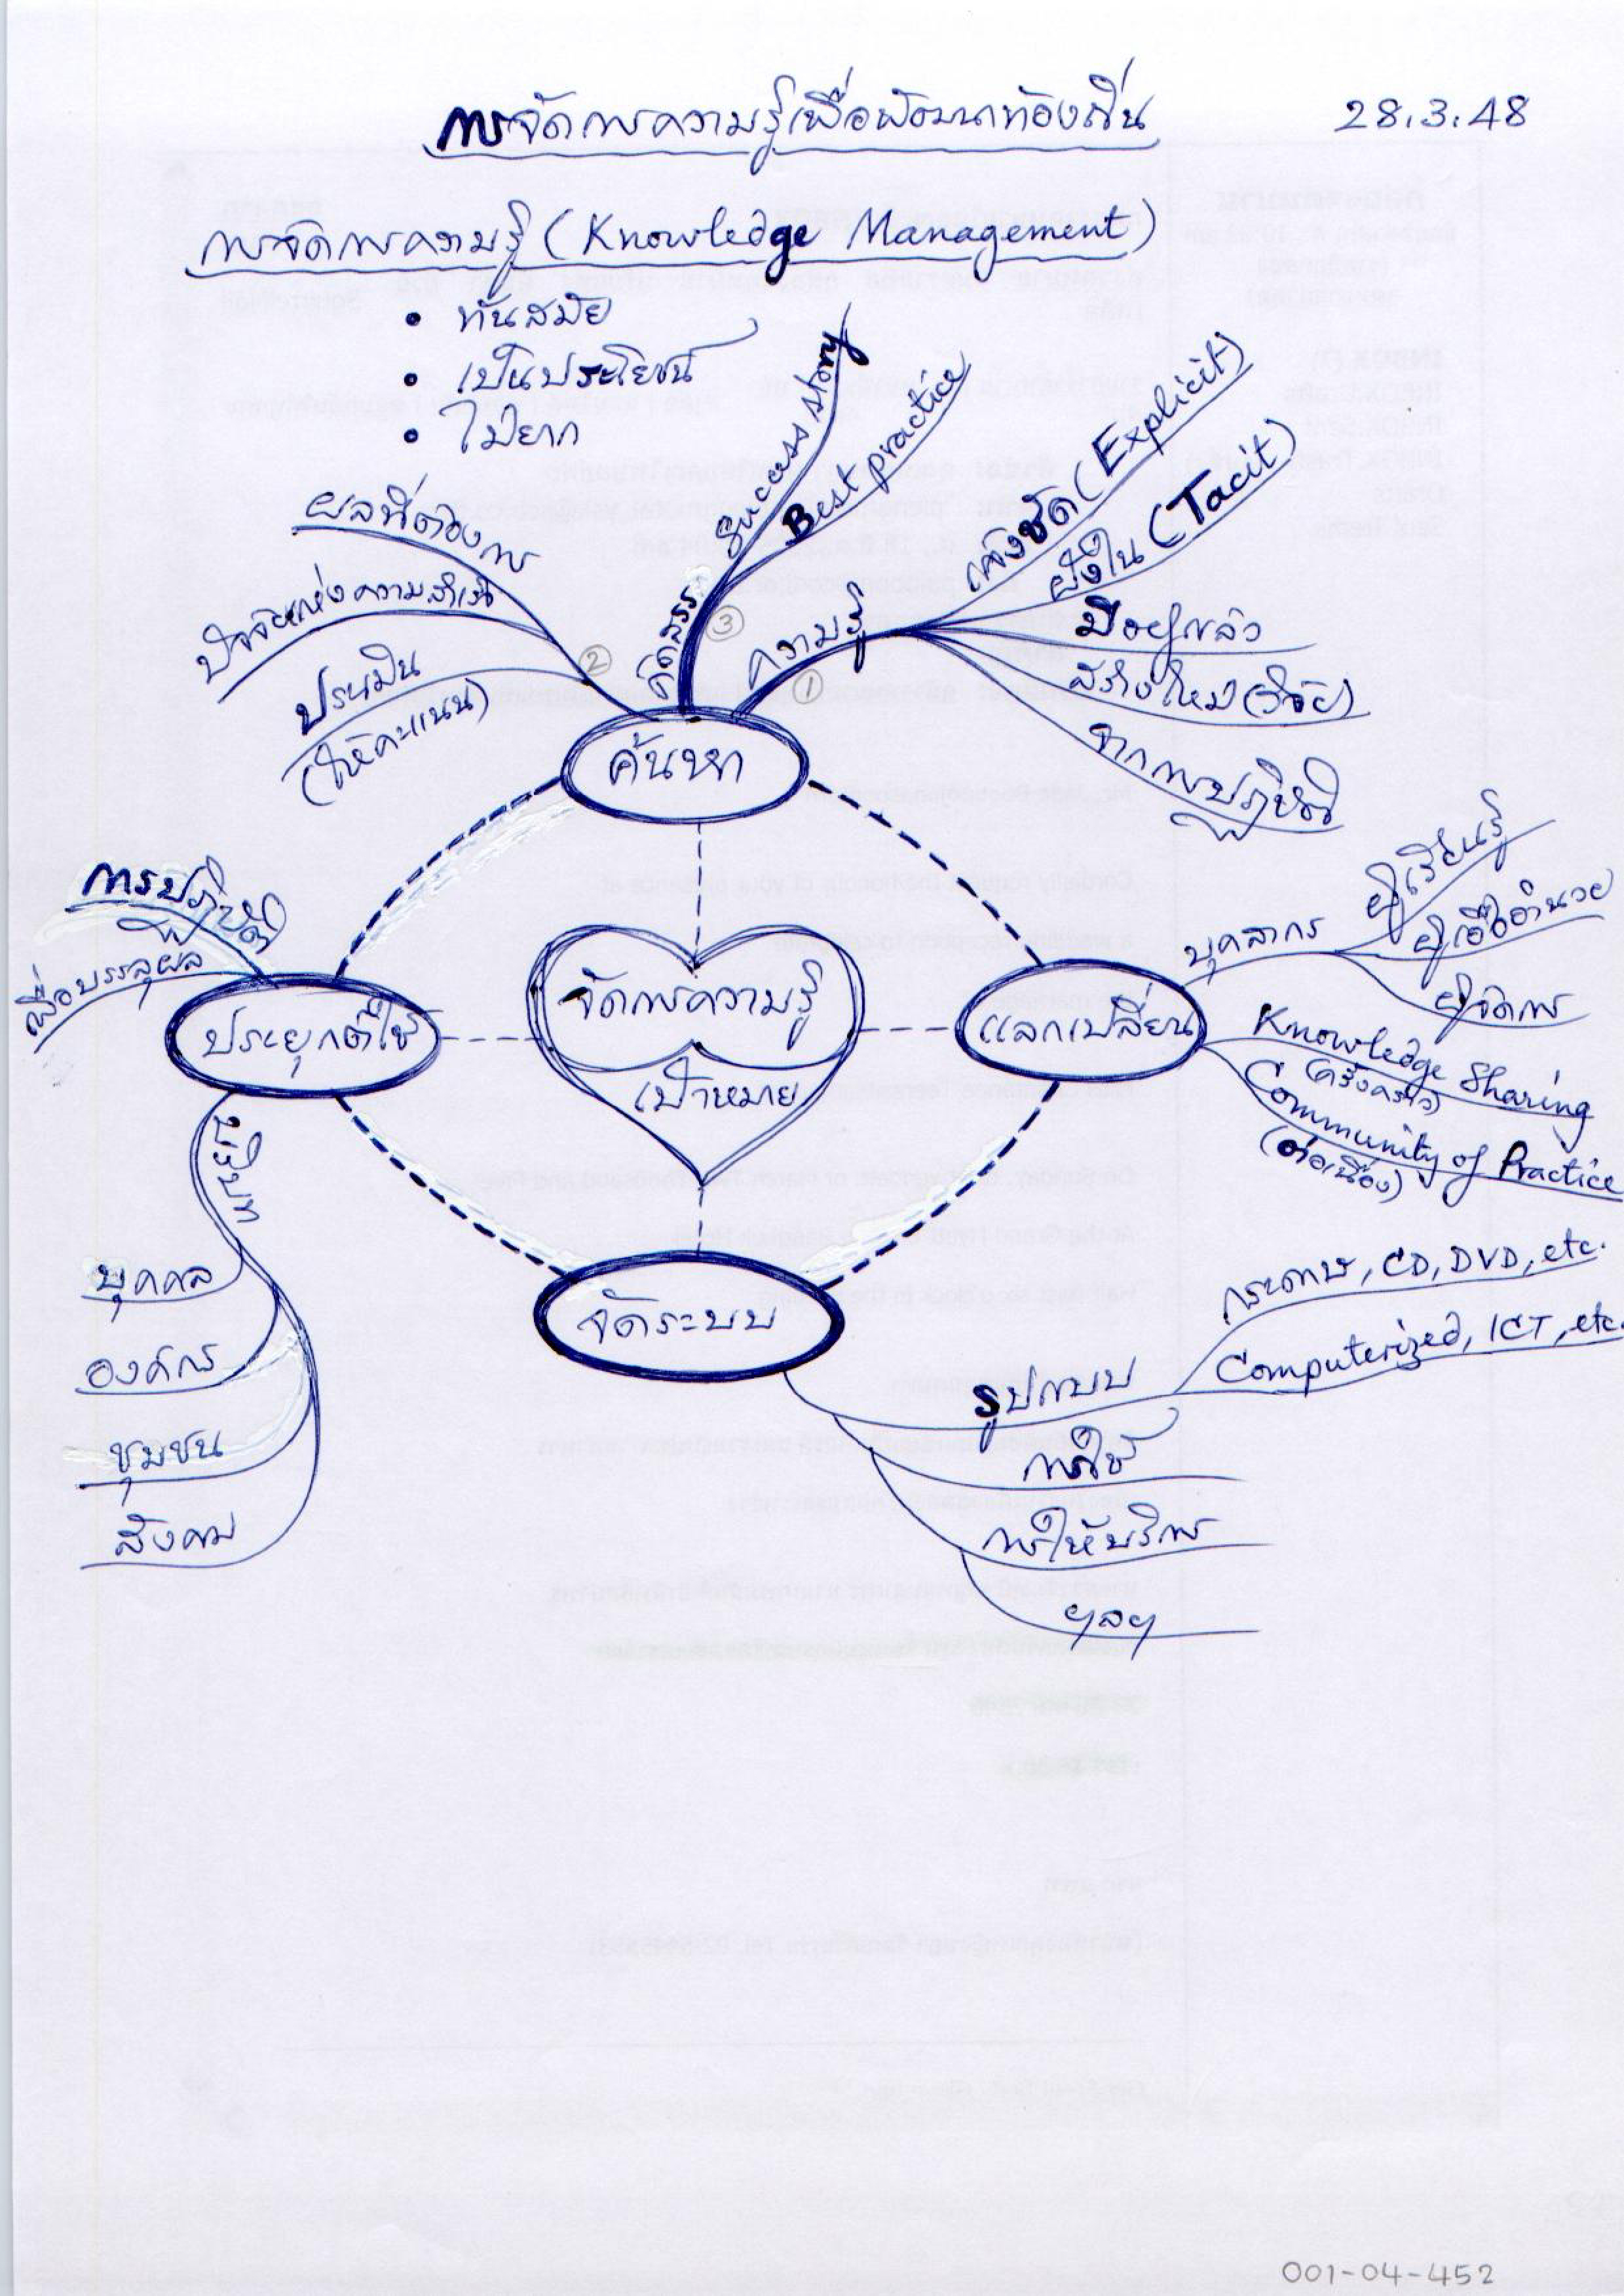 การจัดการความรู้เพื่อพัฒนาท้องถิ่น
28.3.48
การจัดการความรู้ (Knowledge Management)
• ทันสมัย
• เป็นประโยชน์
• ไม่ยาก
ผลที่ต้องการ
ปัจจัยแห่งความสำเร็จ
ประเมิน
(ให้คะแนน)
②
คัดสรร
③
Success story
Best practice
ความรู้
①
แจ้งชัด (Explicit)
ฝังใน (Tacit)
มีอยู่แล้ว
สร้างใหม่ (วิจัย)
จากการปฏิบัติ
ค้นหา
การปฏิบัติ
เพื่อบรรลุผล
ประยุกต์ใช้
จัดการความรู้
เป้าหมาย
แลกเปลี่ยน
บุคลากร
ผู้เรียนรู้
ผู้เอื้ออำนวย
ผู้จัดการ
Knowledge Sharing
(ครั้งคราว)
Community of Practice
(ต่อเนื่อง)
บุคคล
องค์กร
ชุมชน
สังคม
จัดระบบ
รูปแบบ
กระดาษ, CD, DVD, etc.
Computerized, ICT, etc.
การใช้
การให้บริการ
ฯลฯ
001-04-452